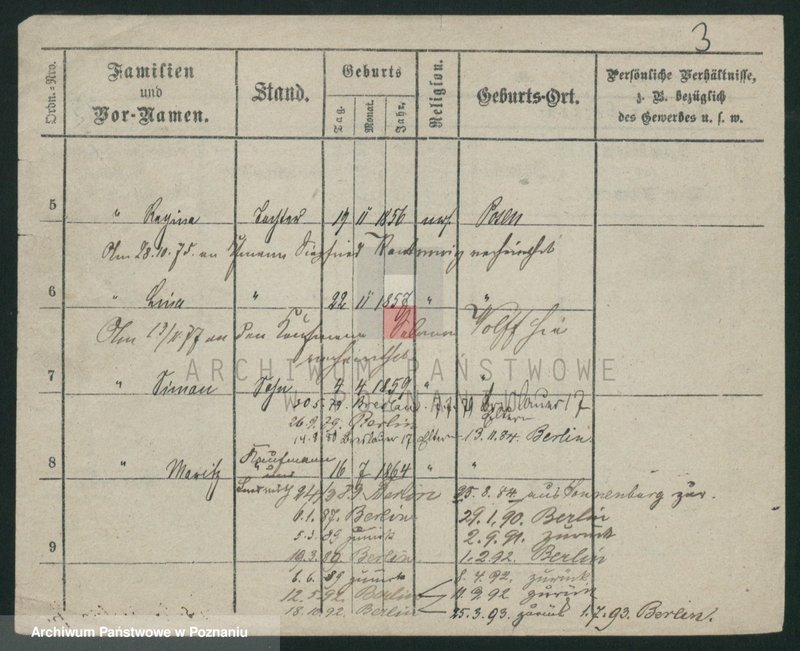 3
Ordn.-Nro.
Familien
und
Vor-Namen.
Stand.
Geburts
Tag.
Monat.
Jahr.
Religion.
Geburts-Ort.
Persönliche Verhältnisse,
z. B. bezüglich
des Gewerbes u. s. w.
5
" Regina Tochter 19 11 1856 mos. Posen
Am 28.10.75. an Siegfried verheirathet
6
" Lina " 22 11 1857 " "
Am an den Kaufmann Salomon Wolff hier
verheirathet
ARCHIWUM PAŃSTWOWE
W POZNANIU
7
" Simon Sohn 4 4 1859 " "
30.5.79. Breslau 7.7.79 Breslauer 17
Eltern
26.9.79. Berlin
Breslauer 17 Eltern 13.11.84. Berlin
8
Kaufmann
" Moritz 16 7 1864 " "
Berlin 25.8.84 aus Sonnenburg zur.
6.1.87. Berlin 29.1.90. Berlin
5.3.89 zurück 2.9.91. zurück
9
19.3.89. Berlin 1.2.92. Berlin
6.6.89 zurück 8.4.92. zurück
12.5.92. Berlin 11.9.92 zurück
18.10.92. Berlin 25.3.93. zurück 1.7.93. Berlin.
Archiwum Państwowe w Poznaniu